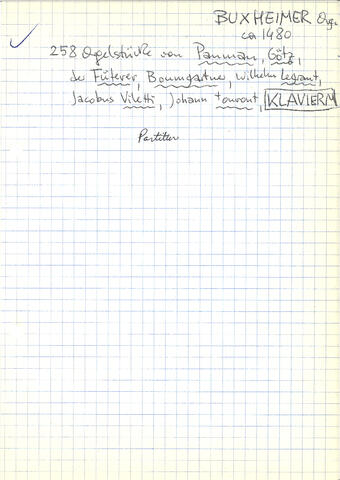 BUXHEIMER Orgn
ca 1480
258 Orgelstücke von Pauman, Götz,
de Füterer, Baumgartner, Wilhelm Legrant,
Jacobus Viletti, Johann Touront, KLAVIERM
Partitur